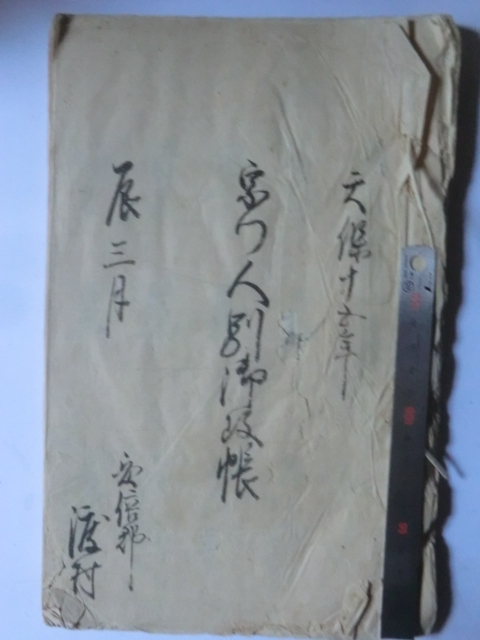 天保十五年
宗門人別御改帳
辰三月
安倍郡
渡村